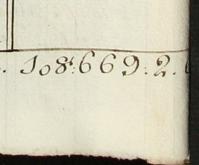 . 108:669:2.